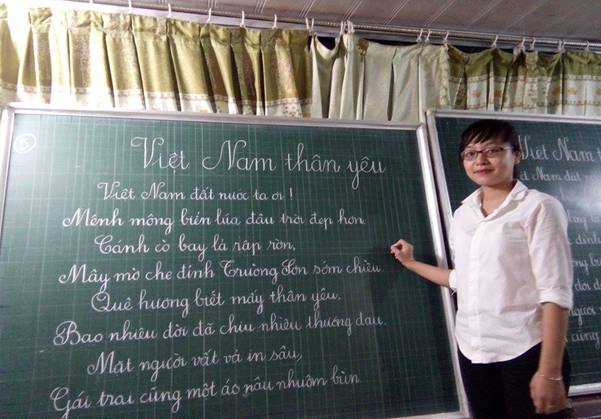 5
Việt Nam thân yêu
Việt Nam đất nước ta ơi !
Mênh mông biển lúa đâu trời đẹp hơn
Cánh cò bay lả rập rờn,
Mây mờ che đỉnh Trường Sơn sớm chiều
Quê hương biết mấy thân yêu,
Bao nhiêu đời đã chịu nhiều thương đau.
Mặt người vất vả in sâu,
Gái trai cũng một áo nâu nhuộm bùn.
Việt Nam
Nam đất